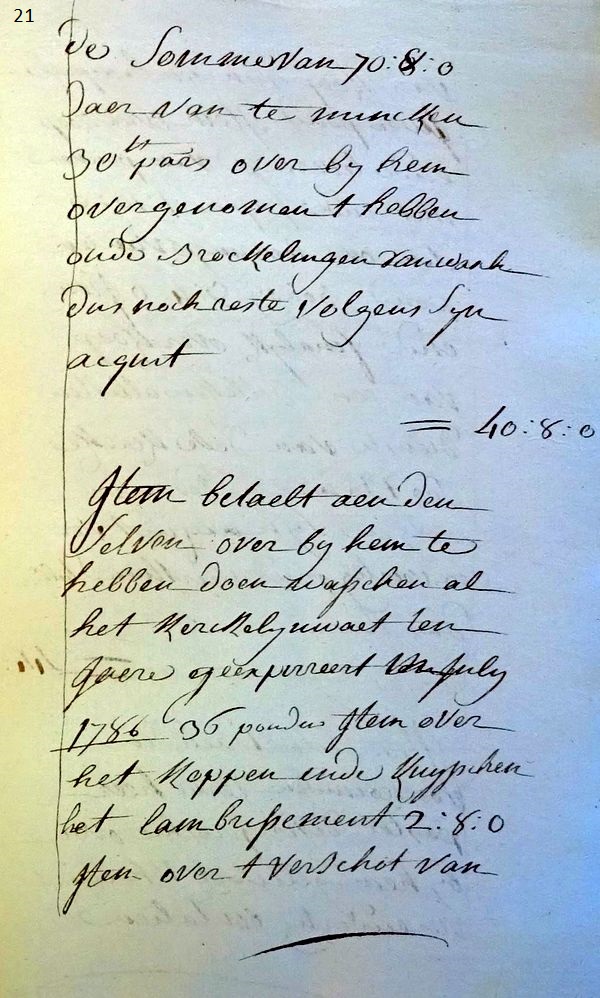 21
de Somme van 70:8:0
daer van te mincken
30 lt pars over by hem
overgenomen t hebben
oude Brockelingen van wank
dus noch reste Volgens Syn
acquit
= 40:8:0
Item betaelt aen den
Selven over by hem te
hebben doen wasschen al
het kerckelynwaet ten
Jaere geexpireert July
1786 36 ponden Item over
het kappen ende kuysschen
het lambrissement 2:8:0
Item over t verschot van